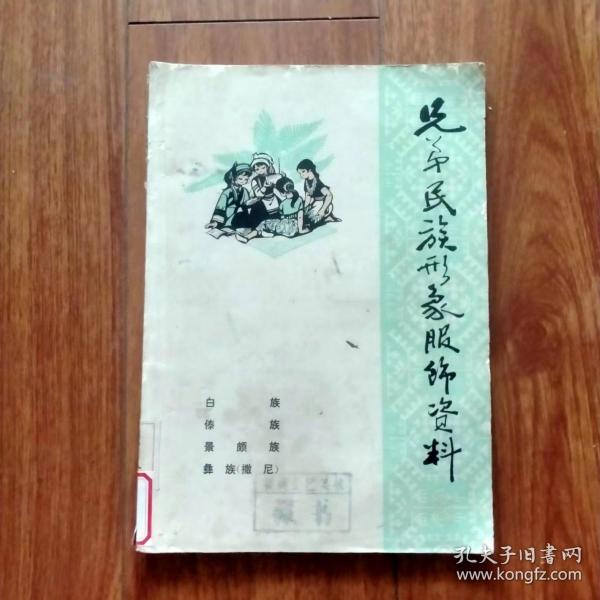 兄弟民族形象服饰资料
白族
傣族
景颇族
彝族(撒尼)
藏书
孔夫子旧书网
www.kongfz.com